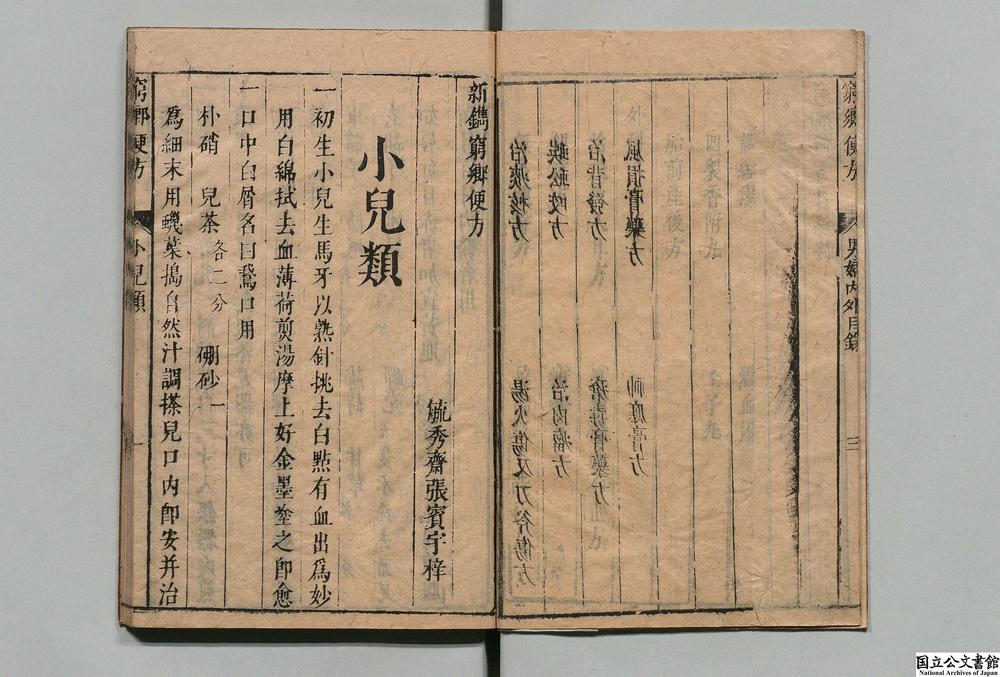 窮鄉便方 男婦內外目錄 三
風損膏藥方 神應膏方
治背發方 瘡毒膏藥方
蜈蚣咬方 治肉瘤方
治痰核方 湯火傷及刀斧傷方
新鐫窮鄉便方
毓秀齋張賓宇梓
小兒類
一初生小兒生馬牙以熟針挑去白點有血出爲妙
用白綿拭去血薄荷煎湯摩上好金墨塗之即愈
一口中白屑名曰鵞口用
朴硝 兒茶各二分 硼砂一
爲細末用 菜搗自然汁調搽兒口內即安并治
窮鄉便方 小兒類 一
国立公文書館
National Archives of Japan